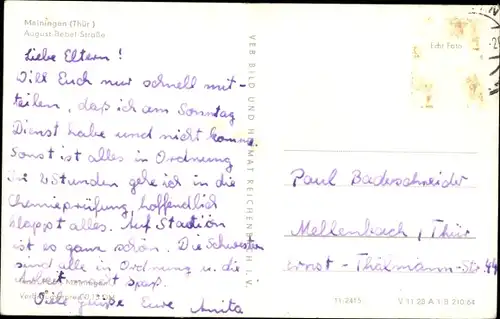 Meiningen (Thür.)
August-Bebel-Straße
Liebe Eltern!
Will Euch nur schnell mit-
teilen, daß ich am Sonntag
Dienst habe und nicht komme.
Sonst ist alles in Ordnung
In 2 Stunden gehe ich in die
Chemieprüfung, hoffentlich
klappt alles. Auf Station
ist es ganz schön. Die Schwestern
sind alle in Ordnung u. die
Arbeit macht Spaß.
Viele Grüße Eure Anita
VEB BILD UND HEIMAT REICHENBACH I. V.
Echt Foto
Paul Badeschneider
Mellenbach, Thür
Ernst-Thälmann-Str 44
11/2415
V 11 28 A 1/B 210/64